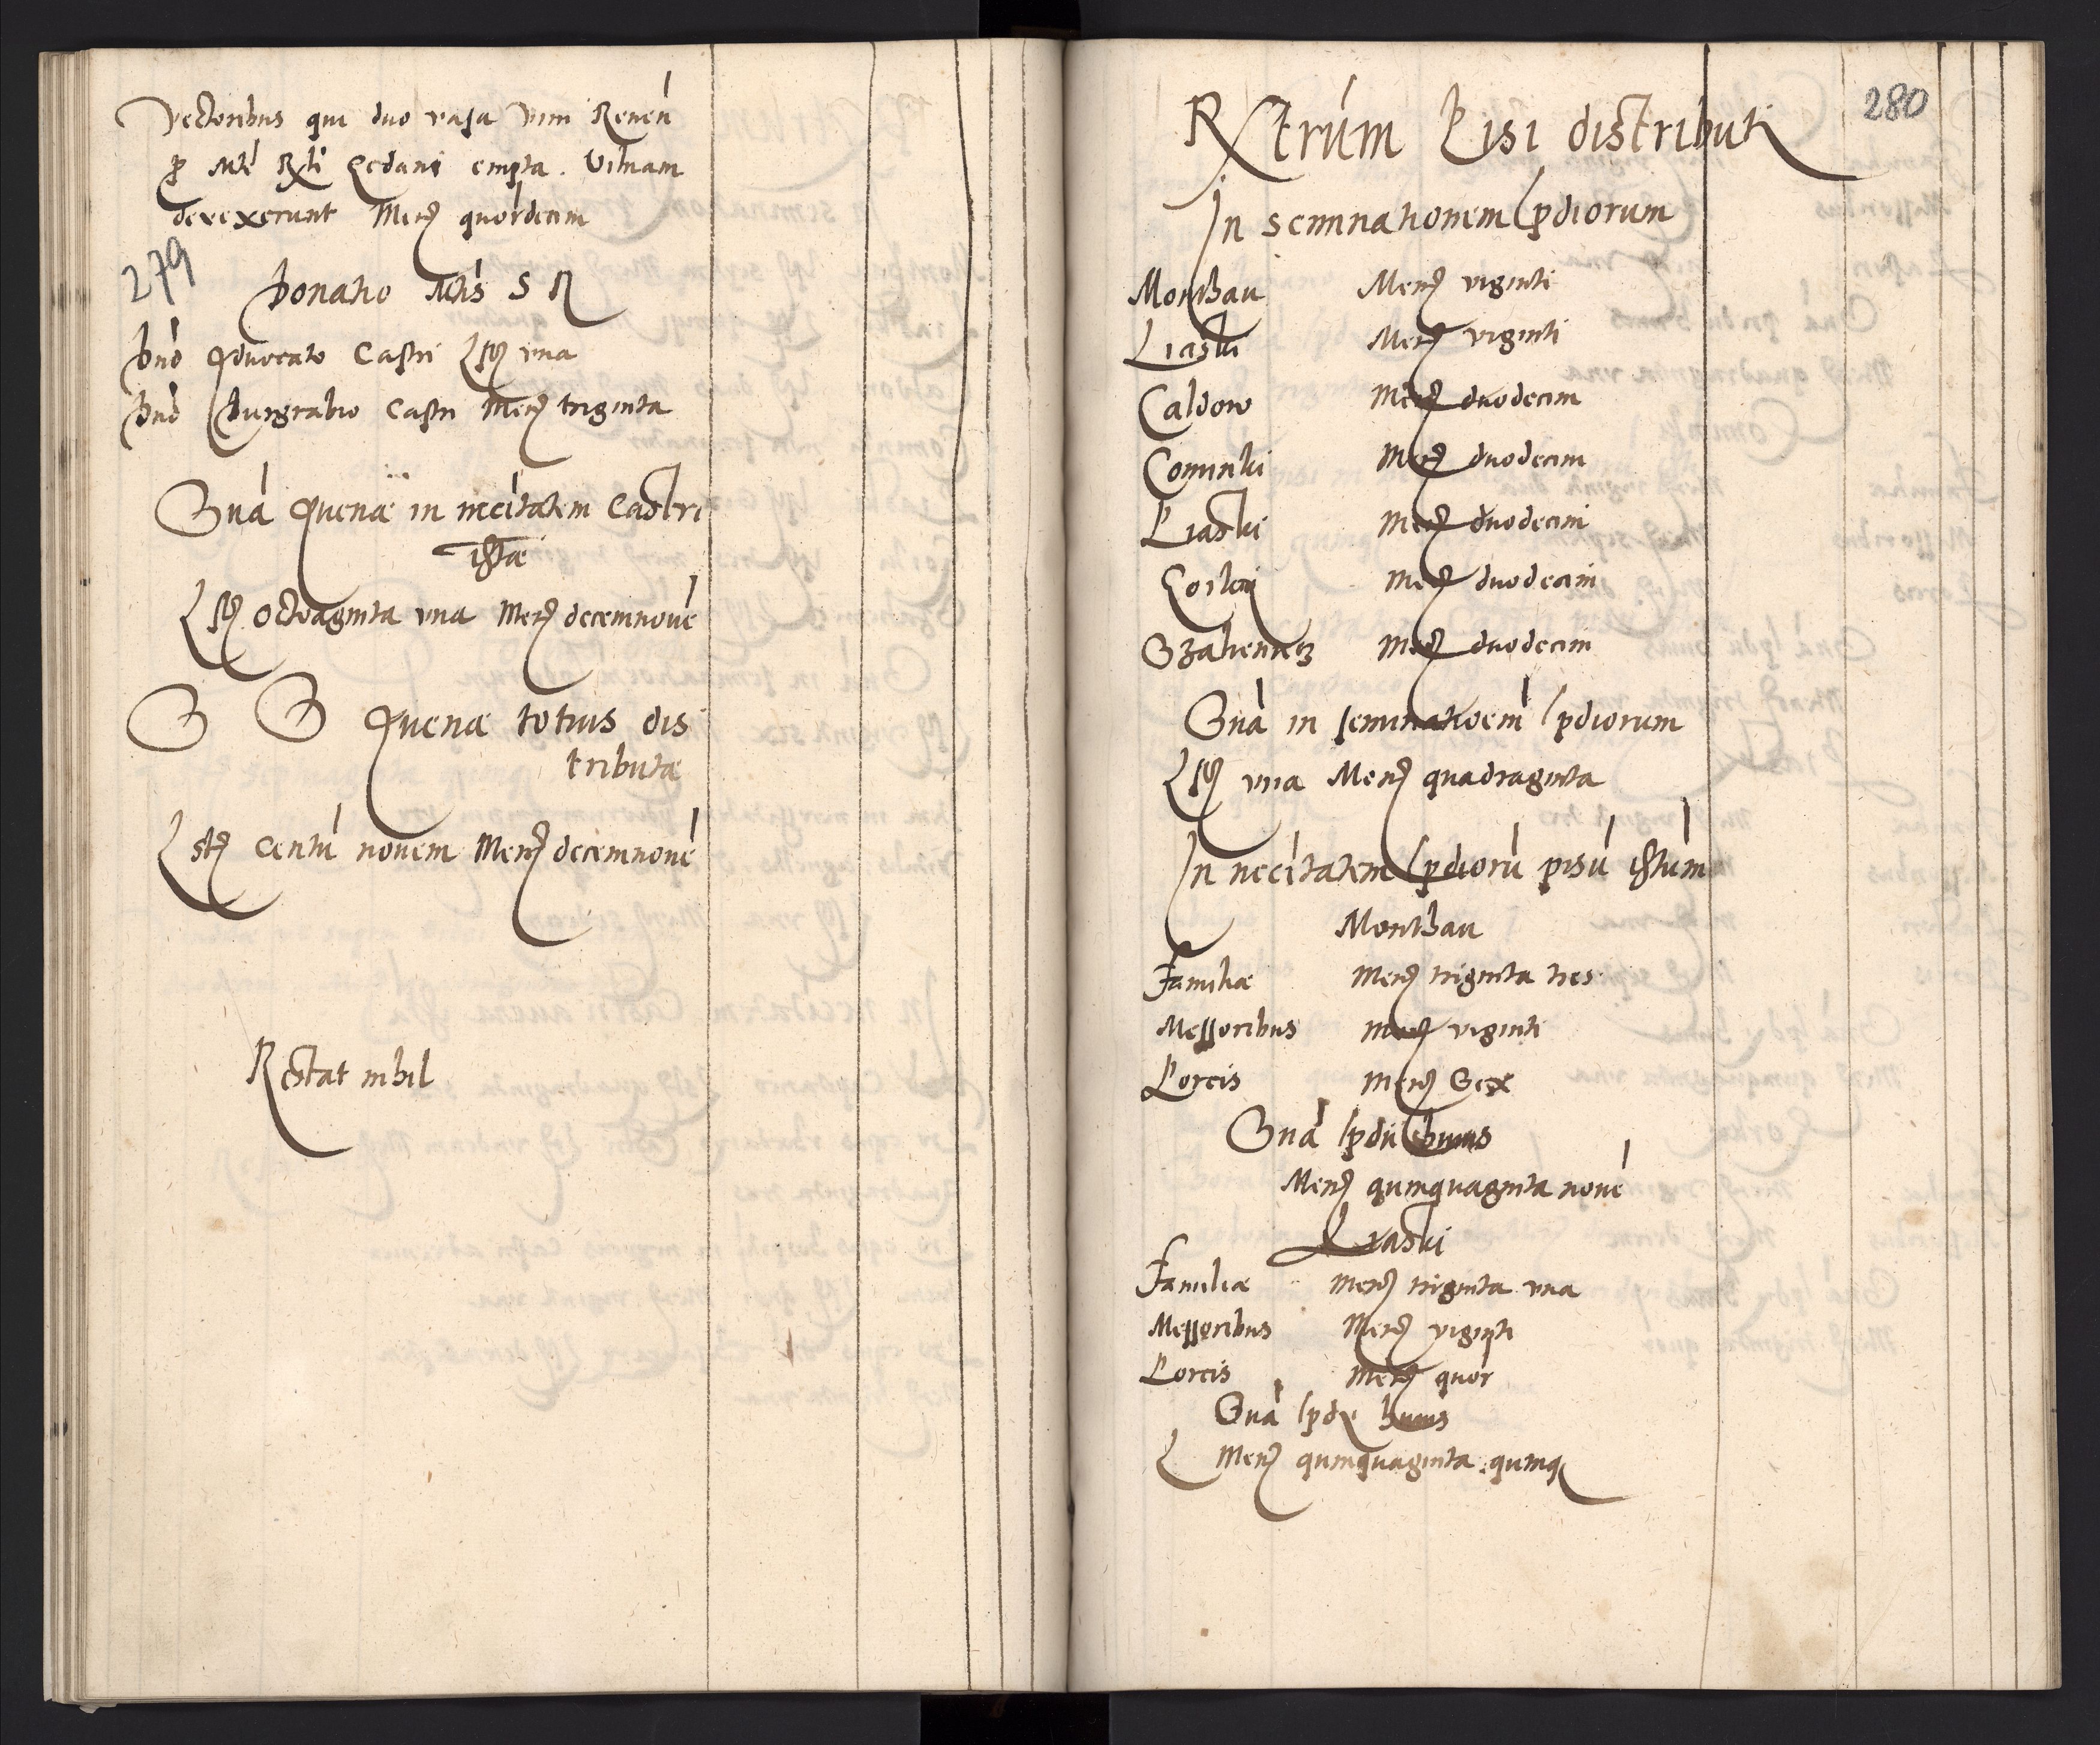 Vectoribus qui duo vasa vini Renen̄
ꝑ Mte Rgli Gedani empta. Vilnam
devexerunt Mens quordecim
279
Donatio Mtis S R
Dno Advocato Castri Lst una
Dno Burgrabio Castri Mens triginta
Sua Avenae in necitatem Castri
istae
Lst octoaginta una Mens decemnove
S S Avenae totius dis
tributae
Lst Centu novem Mens decemnove
Restat nihil
280
Rstrum Pisi distributi
In seminationem pdiorum
Monthau Mens viginti
Liaski Mens viginti
Caldow Mens duodecim
Comınki Mens duodecim
Piaski Mens duodecim
Mens duodecim
Mens duodecim
Sua in seminatioem pdiorum
Lst una Mens quadraginta
In necitatem pdioru pisu istum
Monthau
Familiae Mens triginta tres
Messoribus Mens viginti
Porcis Mens Sex
Sua pdii huius
Mens quinquaginta nove
Liaski
Familiae Mens triginta una
Messoribus Mens viginti
Porcis Mens quor
Sua pdii huius
Mens quinquaginta quinq